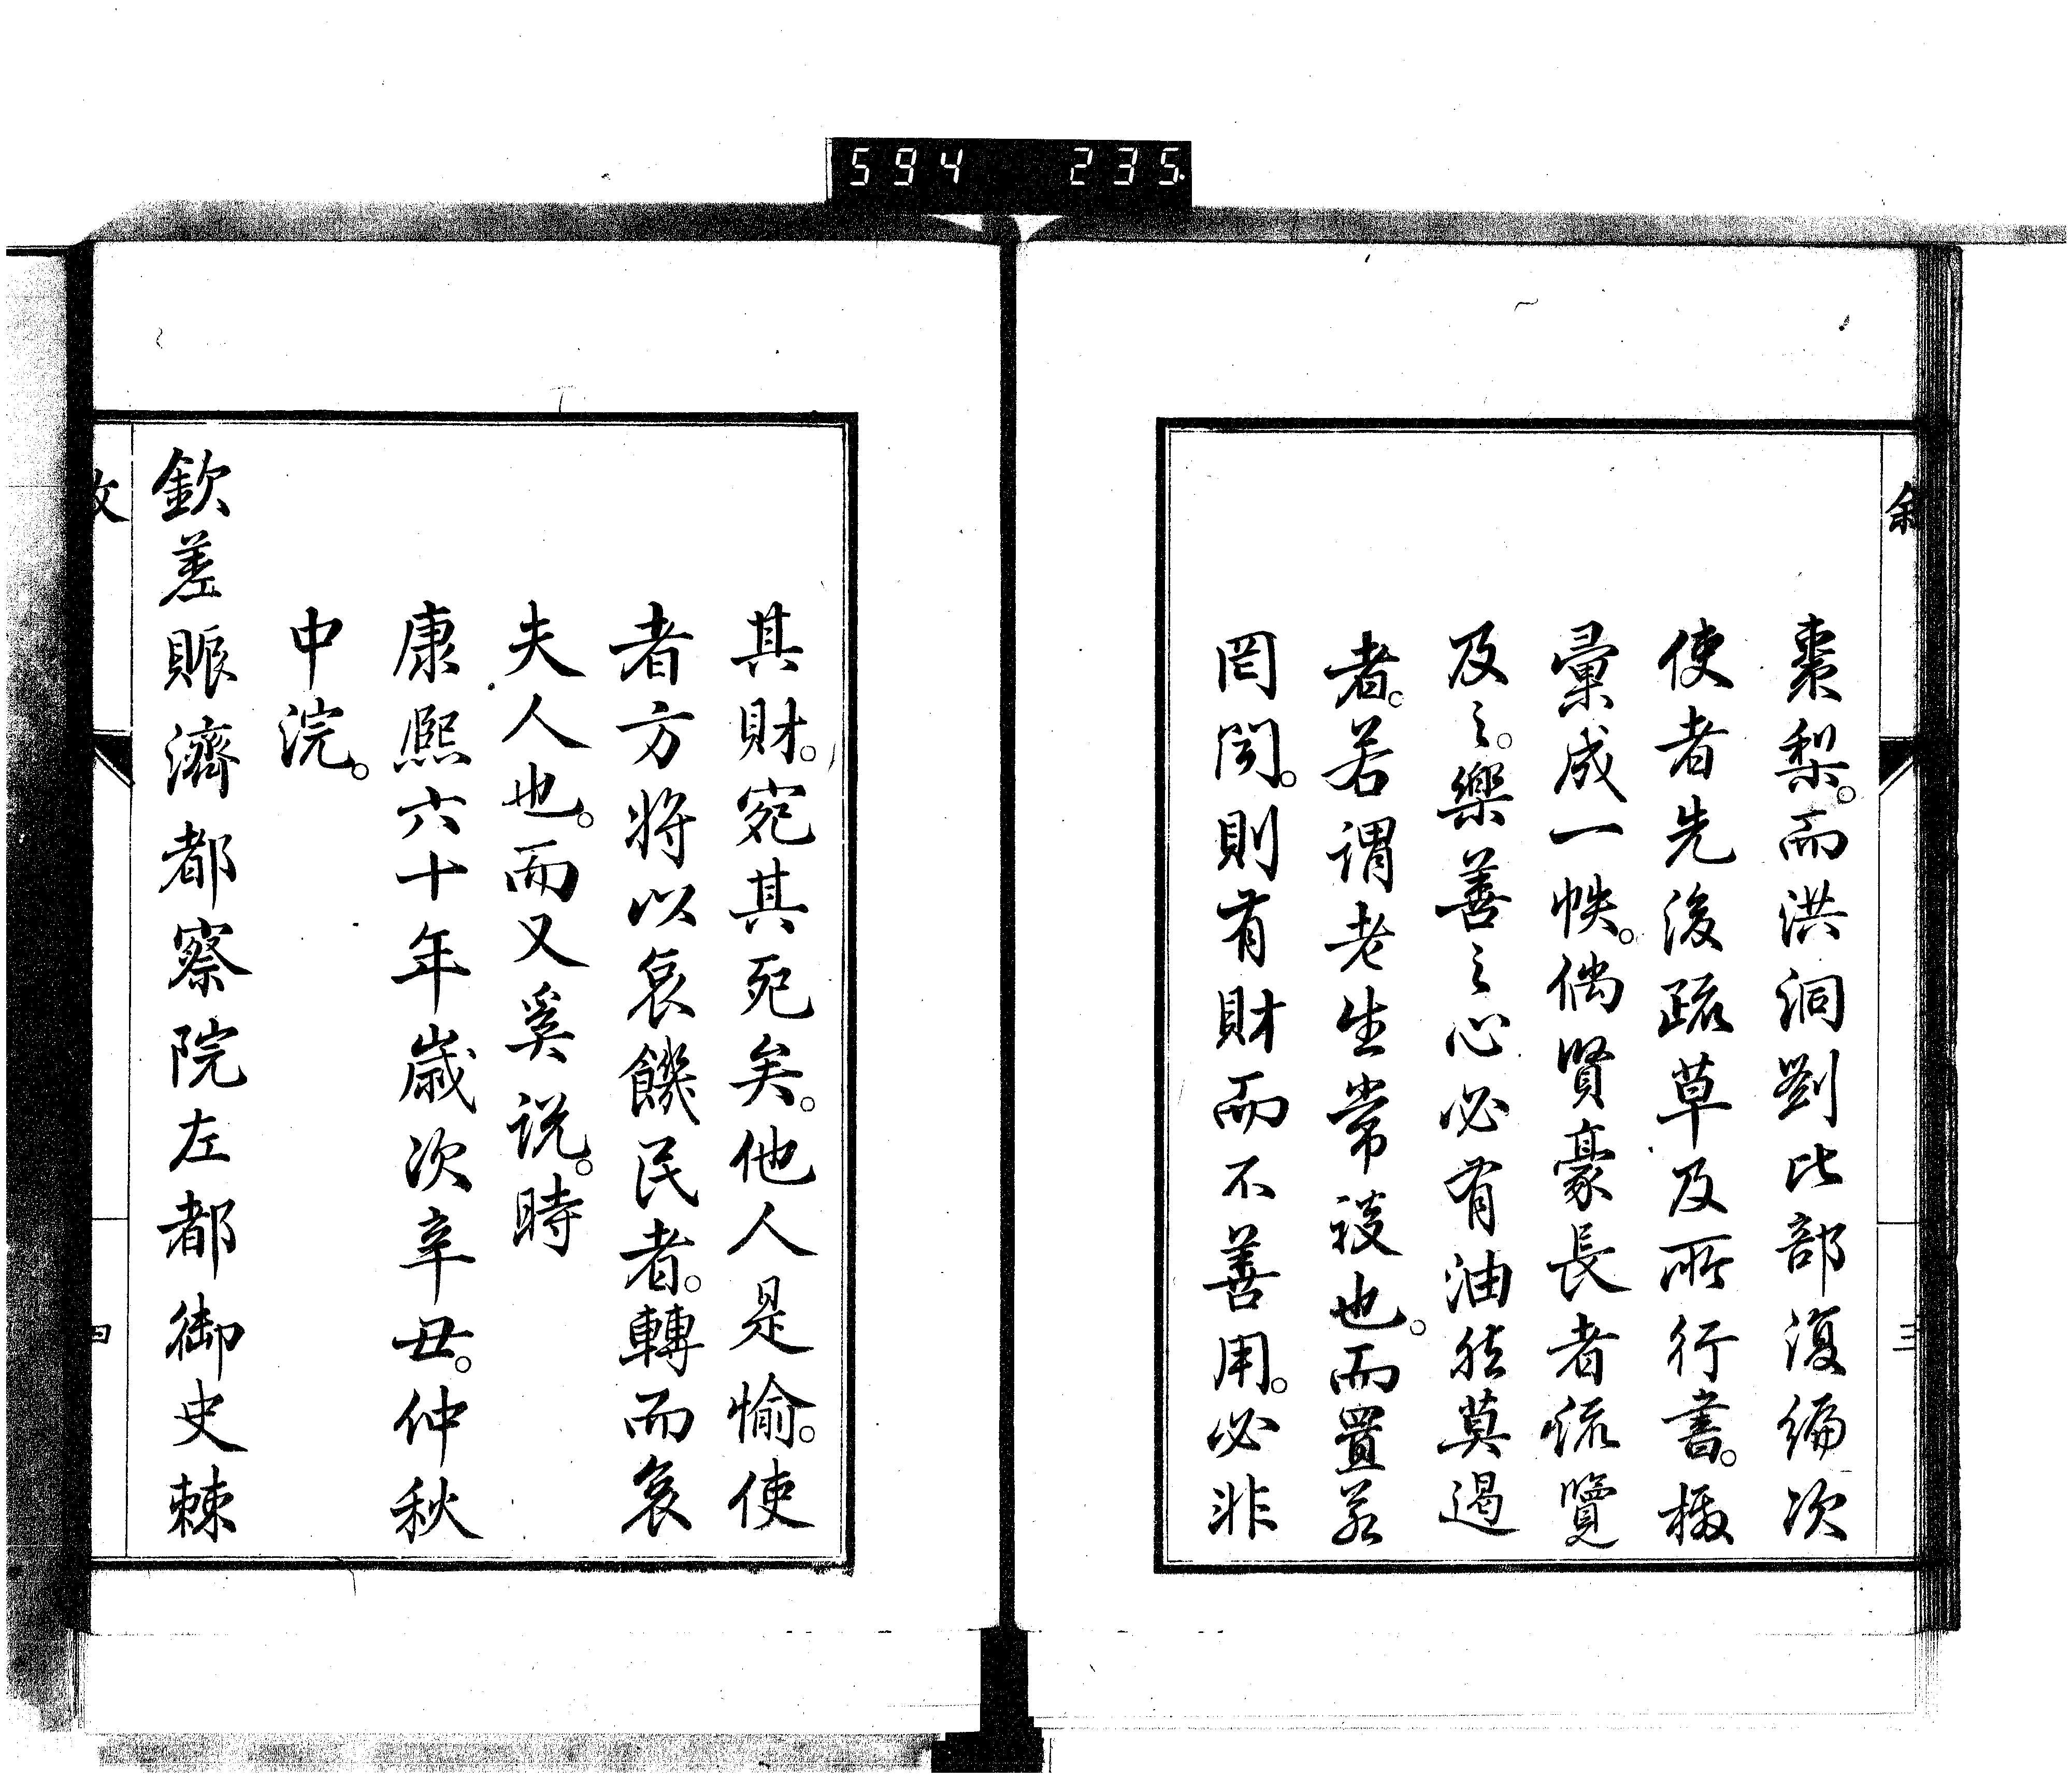 594 235
棗梨。而洪洞劉比部復編次
使者先後疏草及所行書檄。
彙成一帙。倘賢豪長者流覽
及之。樂善之心必有油然莫遏
者。若謂老生常談也。而置若
罔聞。則有財而不善用。必非
三
其財。宛其死矣。他人是愉。使
者方將以哀饑民者。轉而哀
夫人也。而又奚說。時
康熙六十年歲次辛丑。仲秋
中浣。
欽差賑濟都察院左都御史棘